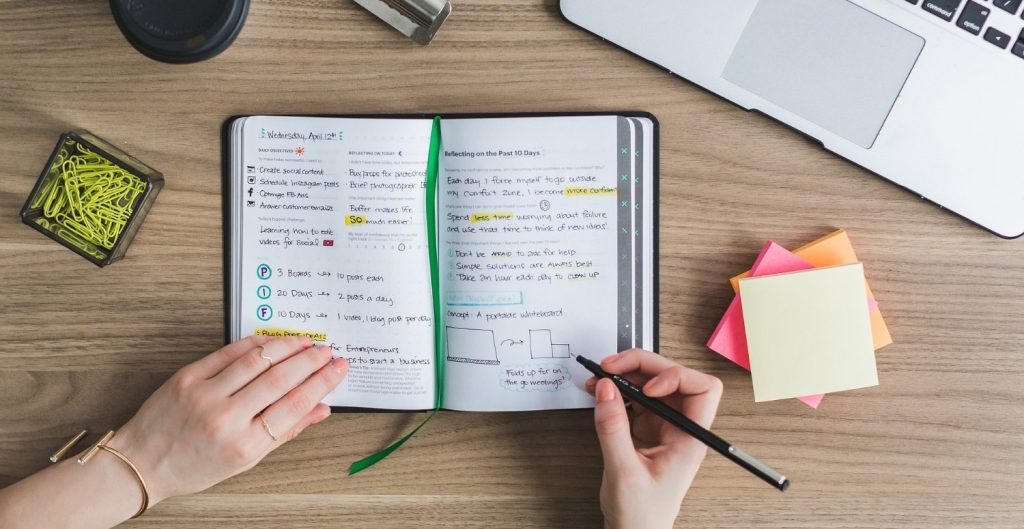 Wednesday, April 12th
DAILY OBJECTIVES
REFLECTING ON TODAY:
To make today successful, I need to:
Create social content
Schedule Instagram posts
Optimize FB Ads
Answer customer emails
Today's biggest challenge:
Learning how to edit
videos for social
Buy props for photoshoot
Brief photographer
Buffer makes life
SO much easier!
P 3 Boards → 10 posts each
I 20 Days → 2 posts a day
F 10 Days → 1 video, 1 blog post per day
BLOG POST IDEAS:
for Entrepreneurs
to start a business
Reflecting on the Past 10 Days
Each day I force myself to go outside
my comfort zone, I become more confident
Spend less time worrying about failure
and use that time to think of new ideas!
1 Don't be AFRAID to ask for help
2 Simple solutions are ALWAYS best
3 Take an hour each day to CLEAN UP
Concept: A portable whiteboard
Folds up for on
the go meetings!
command
option